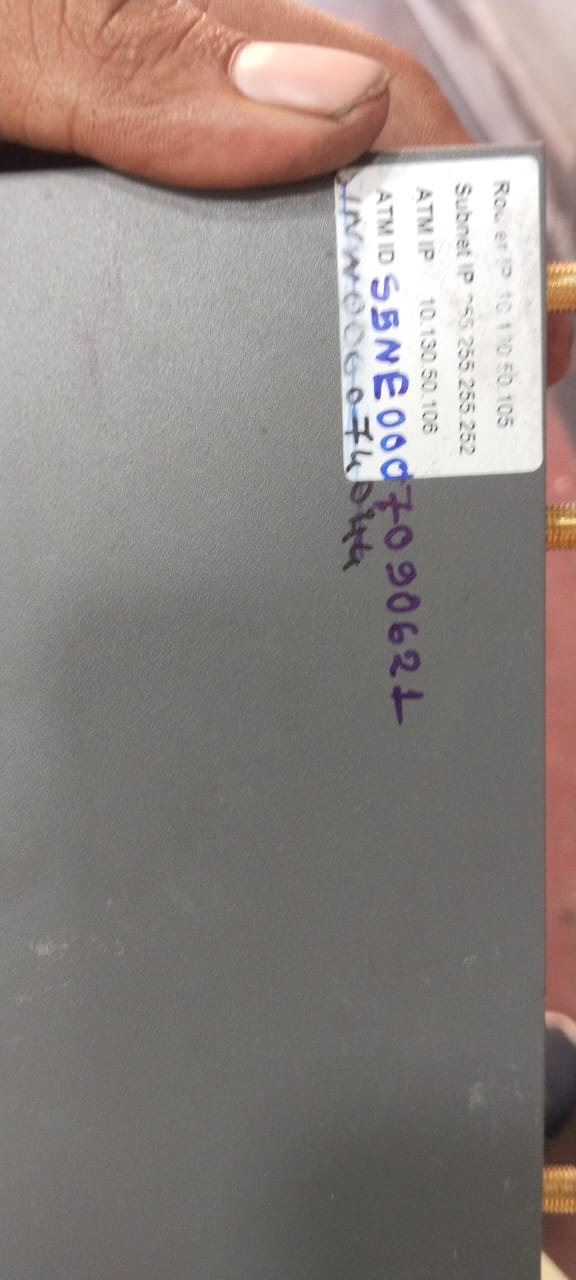 Router IP 10.130.50.105
Subnet IP 255.255.255.252
ATM IP 10.130.50.106
ATM ID SBNE0007090621